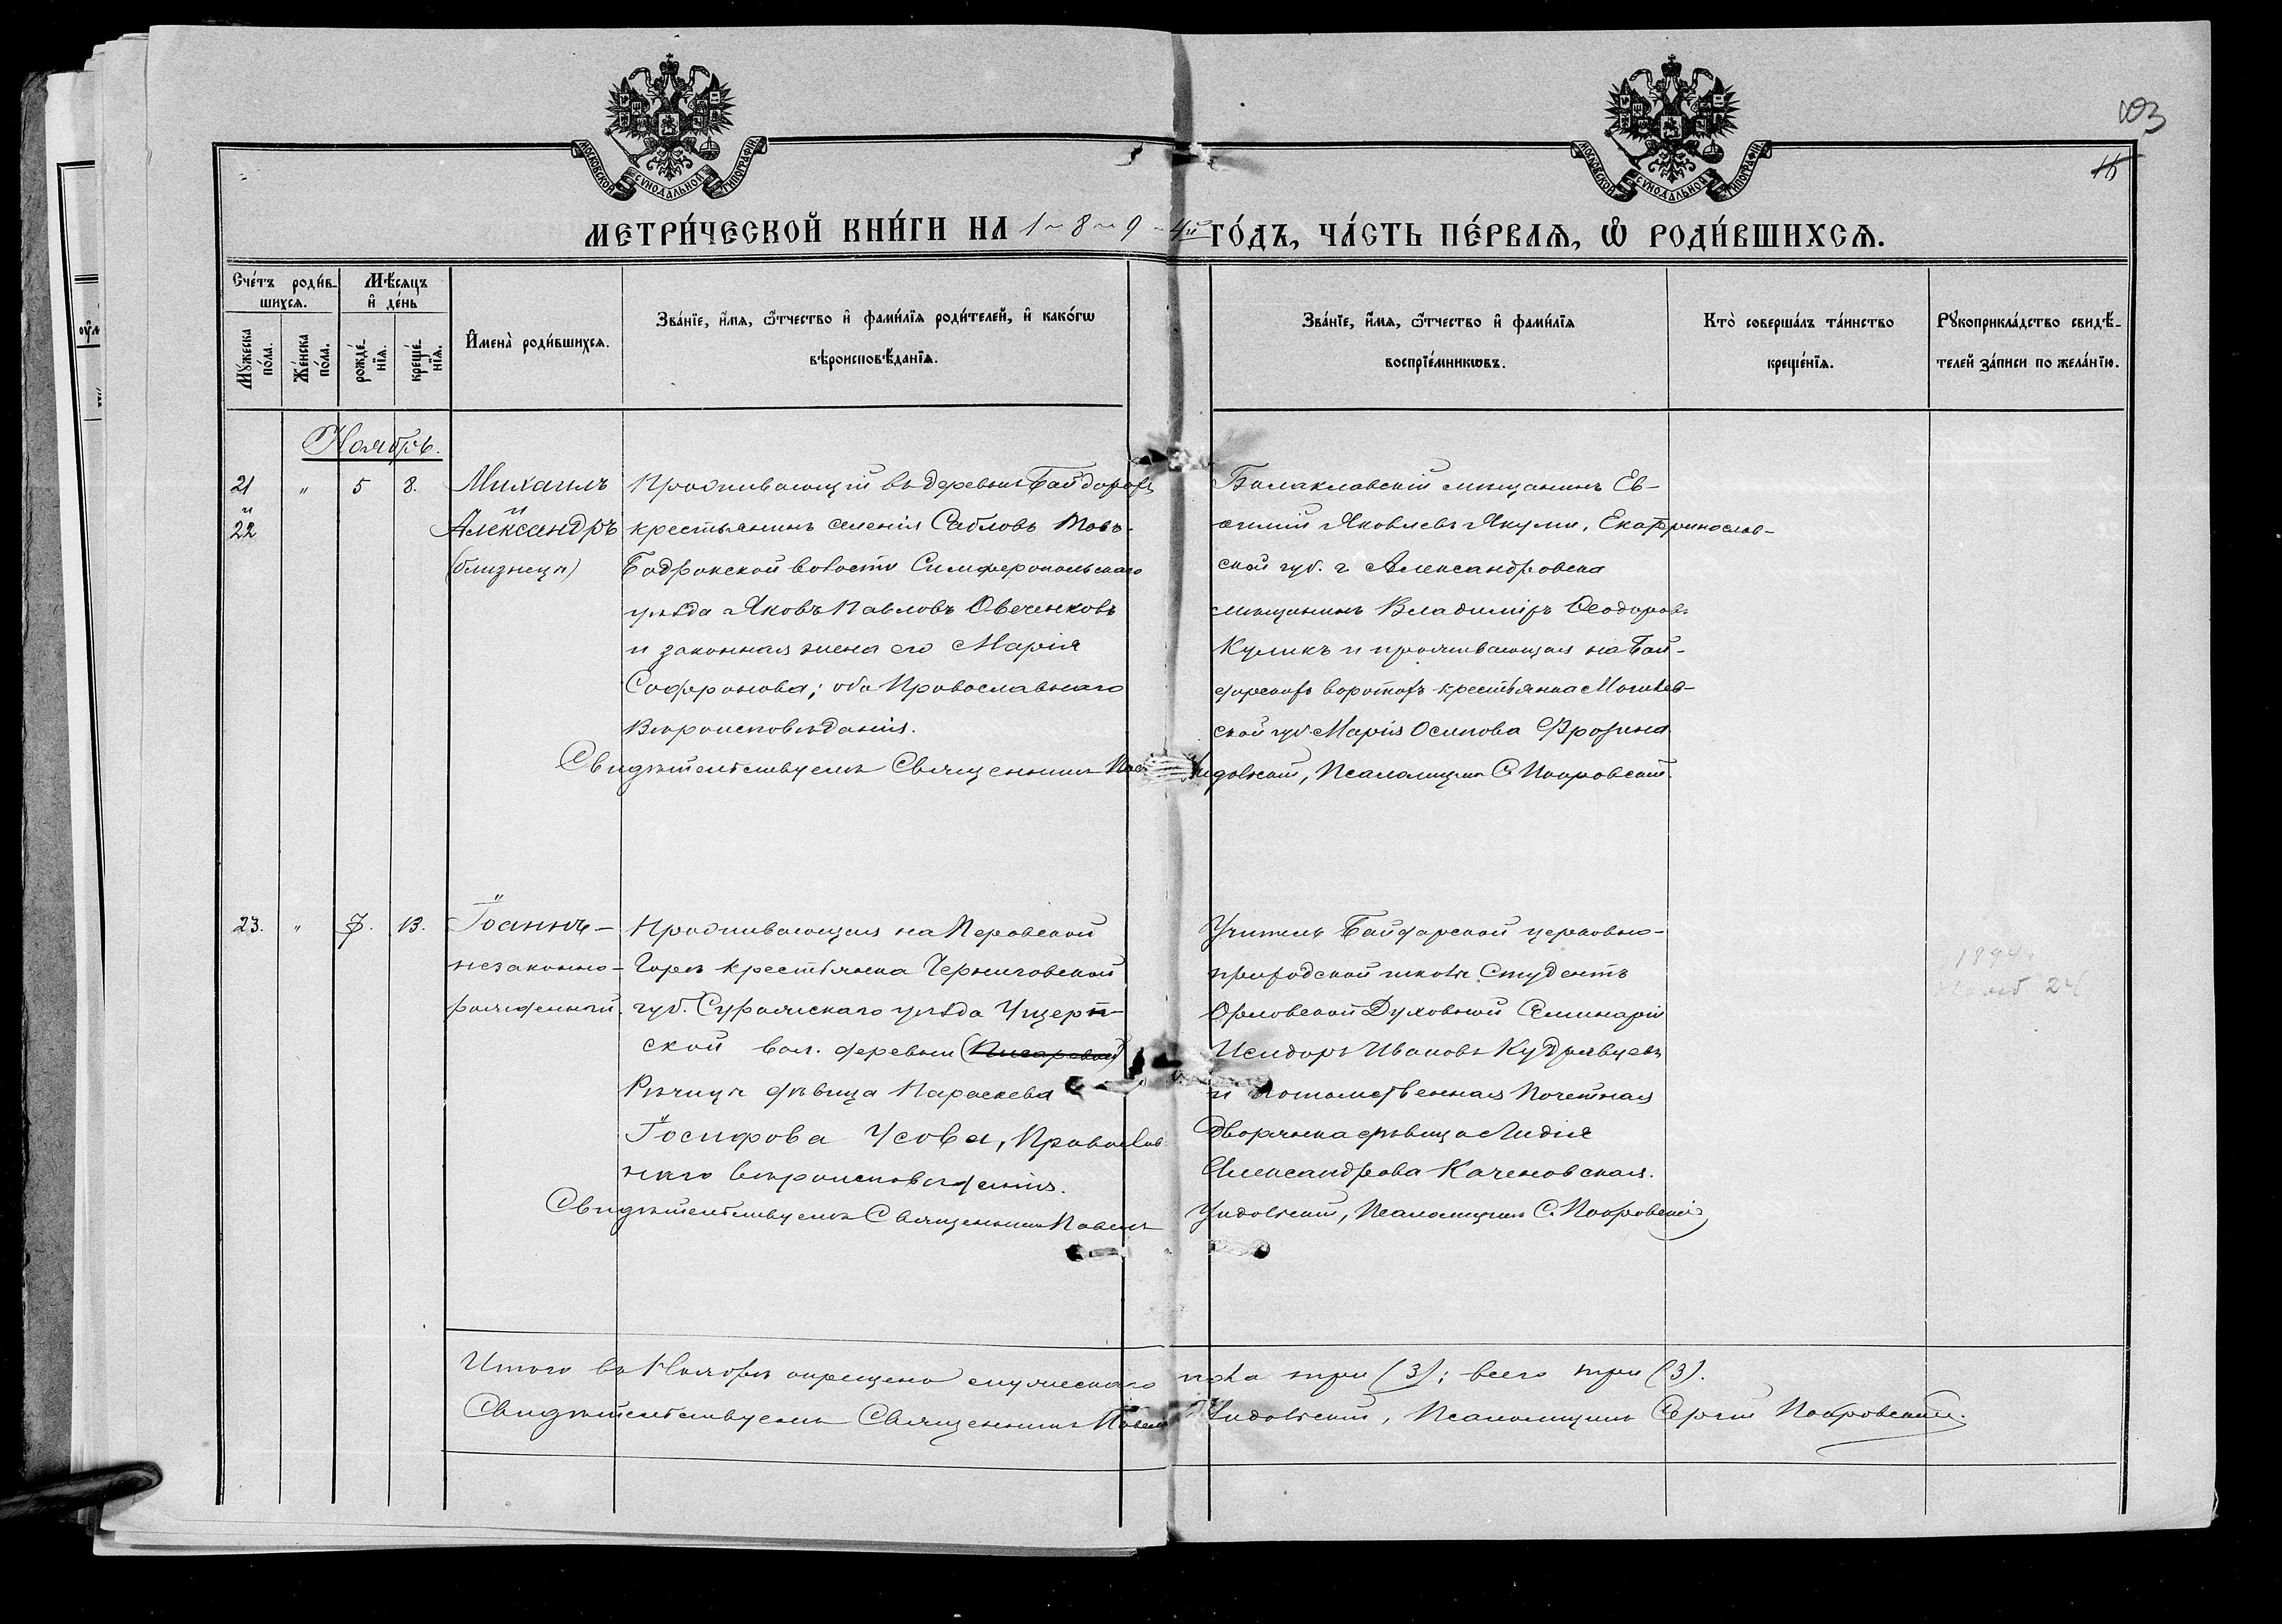 103
МОСКОВСКОЙ СѴНОДАЛЬНОЙ ТИПОГРАФІИ
МОСКОВСКОЙ СѴНОДАЛЬНОЙ ТИПОГРАФІИ
МЕТРИ́ЧЕСКОЙ КНИ́ГИ НА 1-8-9-4й ГО́ДЪ, ЧА́СТЬ ПЕ́РВАѦ, Ѡ҆ РОДИ́ВШИХСѦ.
Сче́тъ роди́вшихсѧ.
Мꙋ́жеска по́ла.
Же́нска по́ла.
Мѣ́сѧцъ и҆ де́нь
рожде́нїѧ.
креще́нїѧ.
И҆мена̀ роди́вшихсѧ.
Зва́нїе, и҆́мѧ, ѻ҆́тчество и҆ фами́лїѧ роди́телей, и҆ како́гѡ
вѣроисповѣ́данїѧ.
Зва́нїе, и҆́мѧ, ѻ҆́тчество и҆ фами́лїѧ
воспрїе́мникѡвъ.
Кто̀ соверша́лъ та́инство
креще́нїѧ.
Рꙋкоприкла́дство свидѣ́-
телей за́писи по жела́нїю.
Ноябрь.
21 и 22
"
5
8.
Михаилъ
и
Александръ
(близнецы)
Проживающій въ деревнѣ Байдарахъ
крестьянинъ селенія Сабловъ
Бадракской волости Симферопольскаго
уѣзда Яковъ Павловъ Овеченковъ
и законная жена его Марія
Софронова; оба Православнаго
Вѣроисповѣданія.
Балаклавскій мѣщанинъ Ев-
ѳимій Яковлевъ Якуми, Екатеринослав-
ской губ. г. Александровска
мѣщанинъ Владиміръ Ѳеодоровъ
Куликъ и проживающая на Бай-
дарскихъ воротахъ крестьянка Могилев-
ской губ. Марія Осипова
Свидѣтельствуемъ Священникъ Павелъ Undовскій, Псаломщикъ С. Покровскій.
23.
"
7.
13.
Іоаннъ –
незаконно-
рожденный.
Проживающая на Перовской
Горѣ крестьянка Черниговской
губ. Суражскаго уѣзда Ущерп-
ской вол. деревни (Писаревки)
Рѣчицы дѣвица Параскева
Іосифова Усова, Православ-
наго вѣроисповѣданія.
Учитель Байдарской церковно-
приходской школы Студентъ
Орловской Духовной Семинаріи
Исидоръ Ивановъ Кудрявцевъ
и потомственная Почетная
Дворянка дѣвица Лидія
Александрова Каченовская.
1894
24
Свидѣтельствуемъ Священникъ Павелъ Псаломщикъ С. Покровскій
Итого въ Ноябрѣ окрещено мужескаго пола три (3); всего три (3).
Свидѣтельствуемъ Священникъ Павелъ Псаломщикъ Сергій Покровскій.